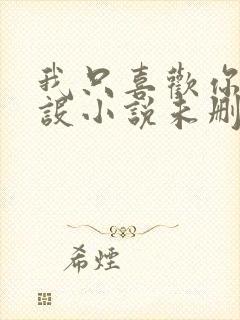 我只喜歡你
設小說未刪
希煙